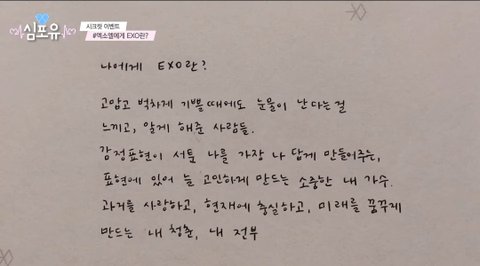 심포유
시크릿 이벤트
#엑소엘에게 EXO란?
나에게 EXO란?
고맙고 벅차게 기쁠때에도 눈물이 난다는걸
느끼고, 알게 해준 사람들.
감정표현이 서툰 나를 가장 나 답게 만들어주는,
표현에 있어 늘 고민하게 만드는 소중한 내 가수.
과거를 사랑하고, 현재에 충실하고, 미래를 꿈꾸게
만드는 내 청춘, 내 전부